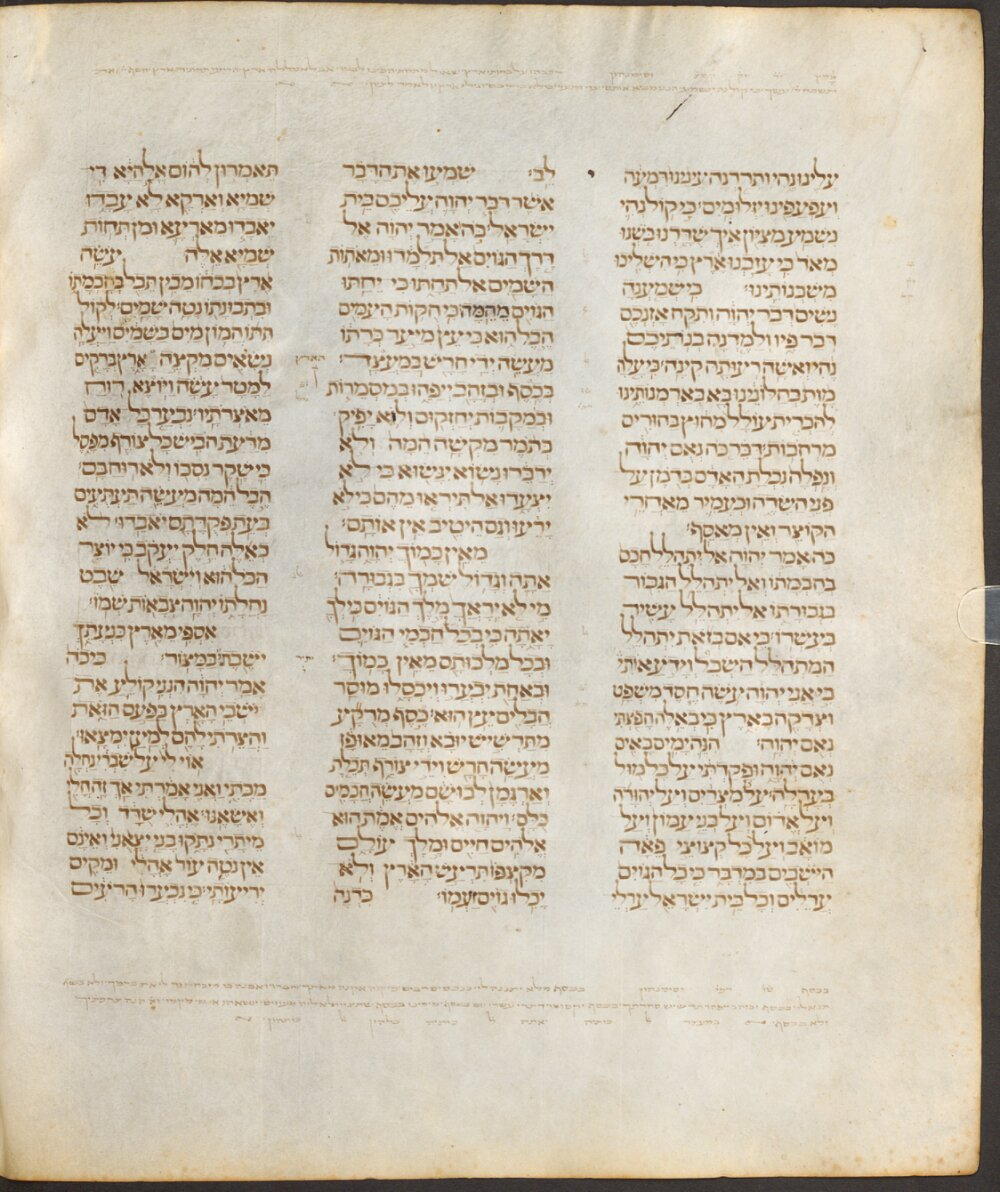 עלינו נהי ותרדנה עינינו דמעה
ועפעפינו יזלו מים כי קול נהי
נשמע מציון איך שדדנו בשנו
מאד כי עזבנו ארץ כי השליכו
משכנותינו כי שמענה
נשים דבר יהוה ותקח אזנכם
דבר פיו ולמדנה בנתיכם
נהי ואשה רעותה קינה כי עלה
מות בחלונינו בא בארמנותינו
להכרית עולל מחוץ בחורים
מרחבות דבר כה נאם יהוה
ונפלה נבלת האדם כדמן על
פני השדה וכעמיר מאחרי
הקוצר ואין מאסף
כה אמר יהוה אל יתהלל חכם
בחכמתו ואל יתהלל הגבור
בגבורתו אל יתהלל עשיר
בעשרו כי אם בזאת יתהלל
המתהלל השכל וידע אותי
כי אני יהוה עשה חסד משפט
וצדקה בארץ כי באלה חפצתי
נאם יהוה הנה ימים באים
נאם יהוה ופקדתי על כל מול
בערלה על מצרים ועל יהודה
ועל אדום ועל בני עמון ועל
מואב ועל כל קצוצי פאה
הישבים במדבר כי כל הגוים
ערלים וכל בית ישראל ערלי
לב שמעו את הדבר
אשר דבר יהוה עליכם בית
ישראל כה אמר יהוה אל
דרך הגוים אל תלמדו ומאתות
השמים אל תחתו כי יחתו
הגוים מהמה כי חקות העמים
הבל הוא כי עץ מיער כרתו
מעשה ידי חרש במעצד
בכסף ובזהב ייפהו במסמרות
ובמקבות יחזקום ולוא יפיק
כתמר מקשה המה ולא
ידברו נשוא ינשוא כי לא
יצעדו אל תיראו מהם כי לא
ירעו וגם היטיב אין אותם
מאין כמוך יהוה גדול
אתה וגדול שמך בגבורה
מי לא יראך מלך הגוים כי לך
יאתה כי בכל חכמי הגוים
ובכל מלכותם מאין כמוך
ובאחת יבערו ויכסלו מוסר
הבלים עץ הוא כסף מרקע
מתרשיש יובא וזהב מאופז
מעשה חרש וידי צורף תכלת
וארגמן לבושם מעשה חכמים
כלם ויהוה אלהים אמת הוא
אלהים חיים ומלך עולם
מקצפו תרעש הארץ ולא
יכלו גוים זעמו כדנה
תאמרון להום אלהיא די
שמיא וארקא לא עבדו
יאבדו מארעא ומן תחות
שמיא אלה עשה
ארץ בכחו מכין תבל בחכמתו
ובתבונתו נטה שמים לקול
תתו המון מים בשמים ויעלה
נשאים מקצה ארץ ברקים
הארץ
למטר עשה ויוצא רוח
מאצרתיו נבער כל אדם
מדעת הביש כל צורף מפסל
כי שקר נסכו ולא רוח בם
הבל המה מעשה תעתעים
בעת פקדתם יאבדו לא
כאלה חלק יעקב כי יוצר
הכל הוא וישראל שבט
נחלתו יהוה צבאות שמו
אספי מארץ כנעתך
ישבת במצור כי כה
אמר יהוה הנני קולע את
יושבי הארץ בפעם הזאת
והצרתי להם למען ימצאו
אוי לי על שברי נחלה
מכתי ואני אמרתי אך זה חלי
ואשאנו אהלי שדד וכל
מיתרי נתקו בני יצאני ואינם
אין נטה עוד אהלי ומקים
יריעותי כי נבערו הרעים